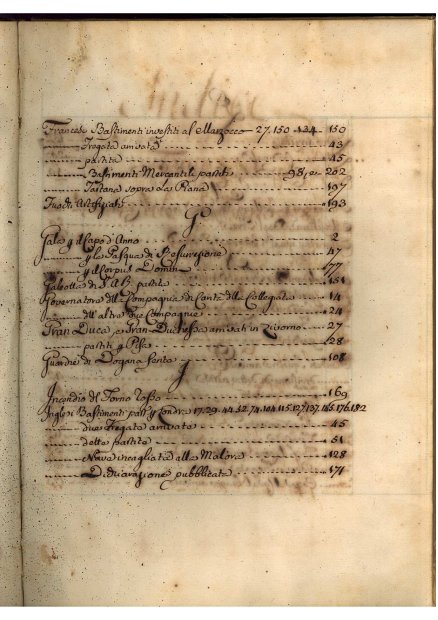 Francesi Bastimenti investiti al Marzocco 27. 150 134 150
Fregata arrivata 43
partita 45
Bastimenti Mercantili partiti 98 202
Tartana sopra la Rana 197
Fuochi Artifiziati 193
G
Gala p il Capo d'Anno 2
p la Pasqua di Resurezione 47
p il Corpus Domini 77
Gabella di S.A.R. partita 151
Governatore della Compagnia di Carità della Collegiata 14
dell'altra Compagnie 24
Gran Duca, e Gran Duchessa arrivati in Livorno 27
partiti p Pisa 28
Guardie di Dogana 108
I
Incendio del Forno Rosso 169
Inglesi Bastimenti part. p Londra 17. 29. 44. 52. 74. 104. 115. 127. 137. 165. 176. 182
due Fregate arrivate 45
dette partite 51
Nave incagliata alla Malora 128
Dichiarazione pubblicata 171